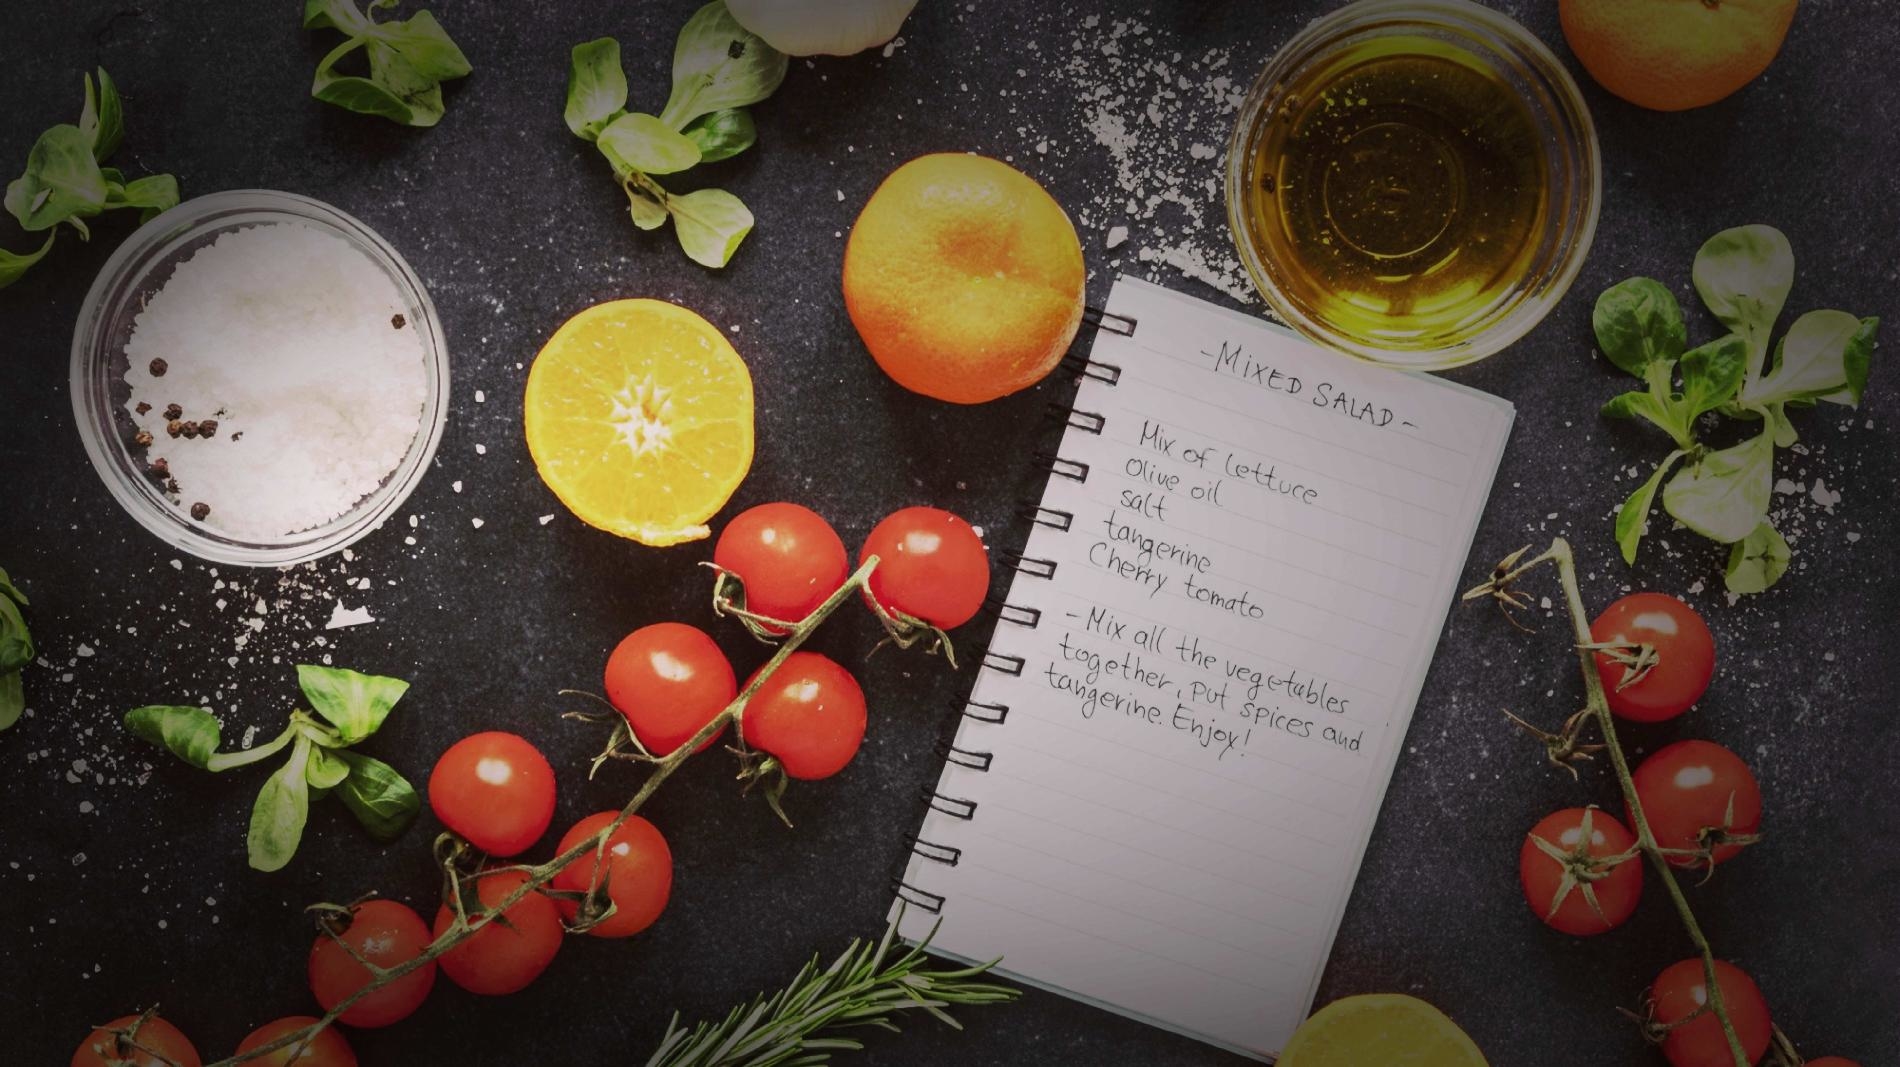 -MIXED SALAD-
Mix of lettuce
Olive oil
salt
tangerine
Cherry tomato
- Mix all the vegetables
together, put spices and
tangerine. Enjoy!